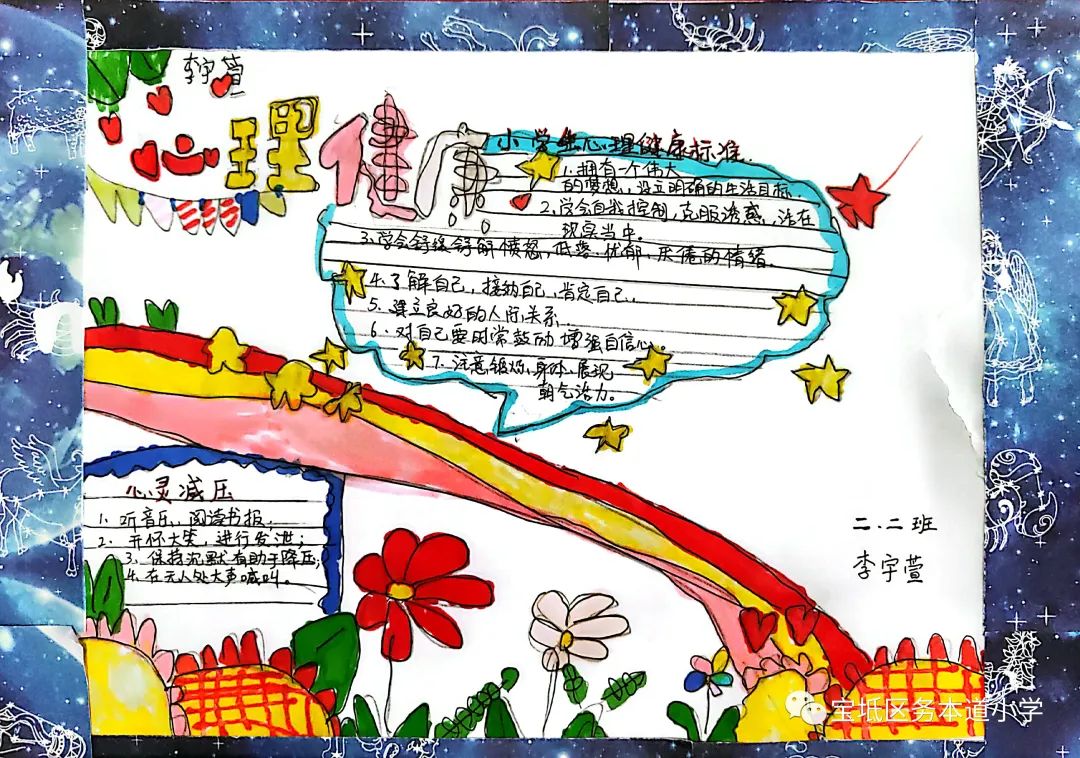 李宇萱
心理健康
小学生心理健康标准.
1.拥有一个伟大
的梦想,设立明确的生活目标
2.学会自我控制,克服诱惑,活在
现实当中。
3.学会舒缓舒解愤怒,低落、忧郁、厌倦的情绪.
4.了解自己,接纳自己,肯定自己.
5.建立良好的人际关系
6.对自己要时常鼓励 增强自信心。
7.注意锻炼,身体,展现,
朝气活力。
心灵减压
1.听音乐,阅读书报;
2.开怀大笑,进行发泄;
3.保持沉默有助于降压;
4.在无人处大声喊叫。
二.二班
李宇萱
宝坻区务本道小学